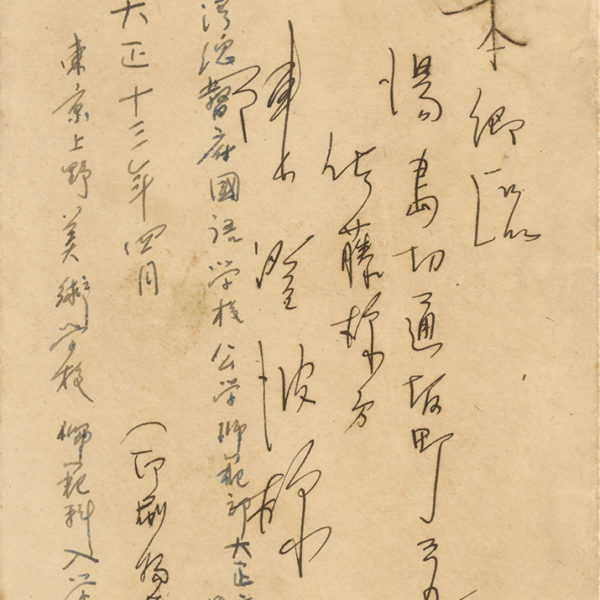 本郷區
湯島切通坂町
佐藤様方
陳澄波様
郷
湾総督府國語学校公学師範部大正
(印刷物
大正十三年四月
東京上野美術学校師範科入学